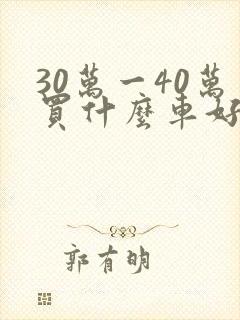 30萬一40萬
買什麼車好
郭有明